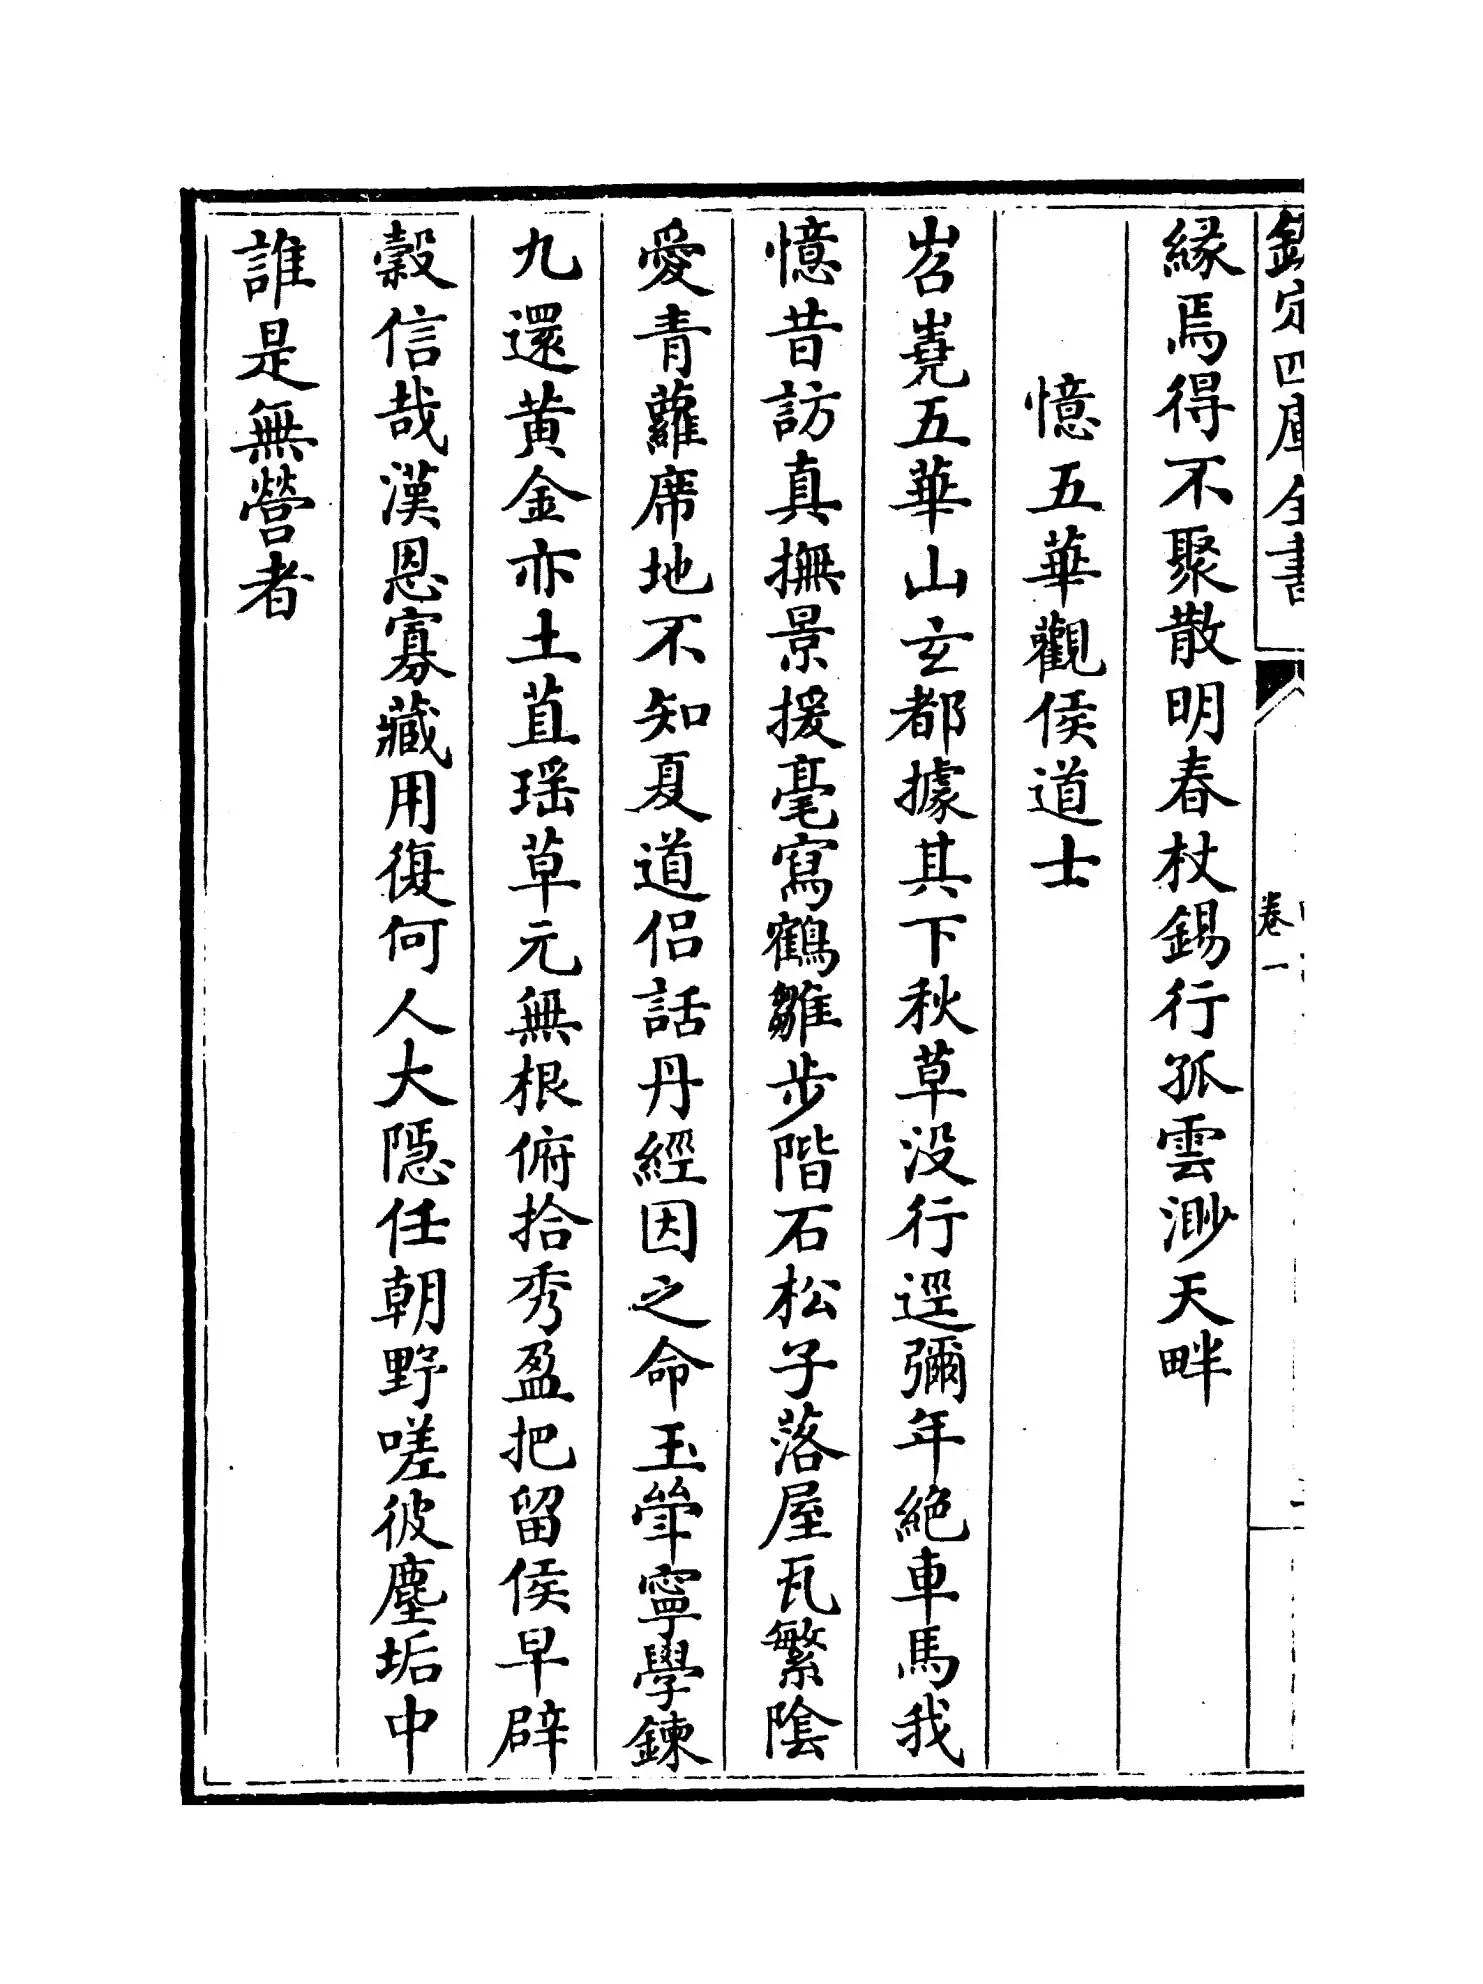 欽定四庫全書
卷一
緣焉得不聚散明春杖錫行孤雲渺天畔
憶五華觀侯道士
岧嶤五華山玄都據其下秋草没行逕彌年絕車馬我
憶昔訪真撫景援毫寫鶴雛步階石松子落屋瓦繁陰
愛青蘿席地不知夏道侣話丹經因之命玉斝寧學鍊
九還黄金亦土苴瑶草元無根俯拾秀盈把留侯早辟
榖信哉漢恩寡藏用復何人大隱任朝野嗟彼塵垢中
誰是無營者